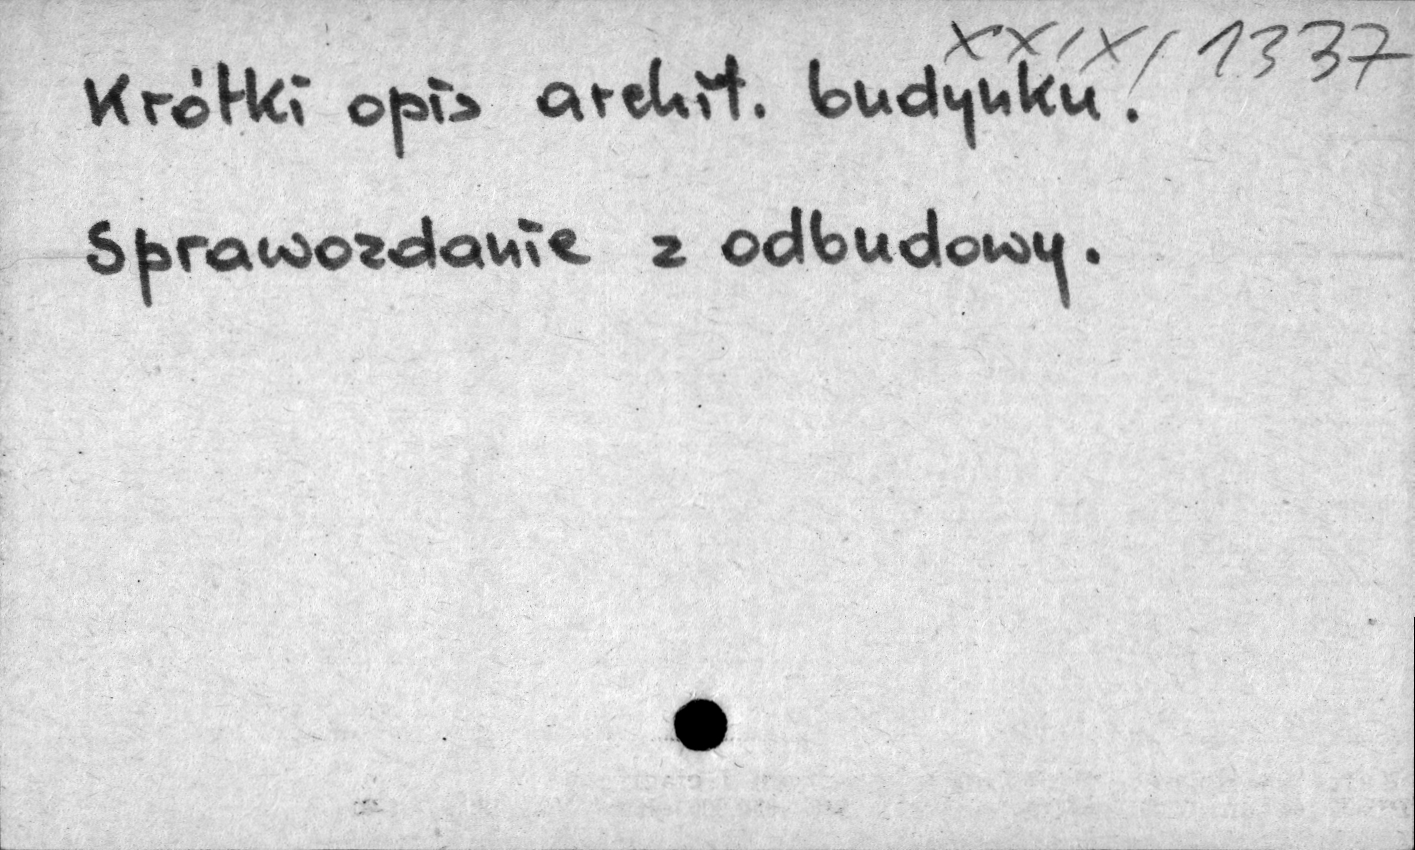 XXIX/1337
Krótki opis archit. budynku.
Sprawozdanie z odbudowy.